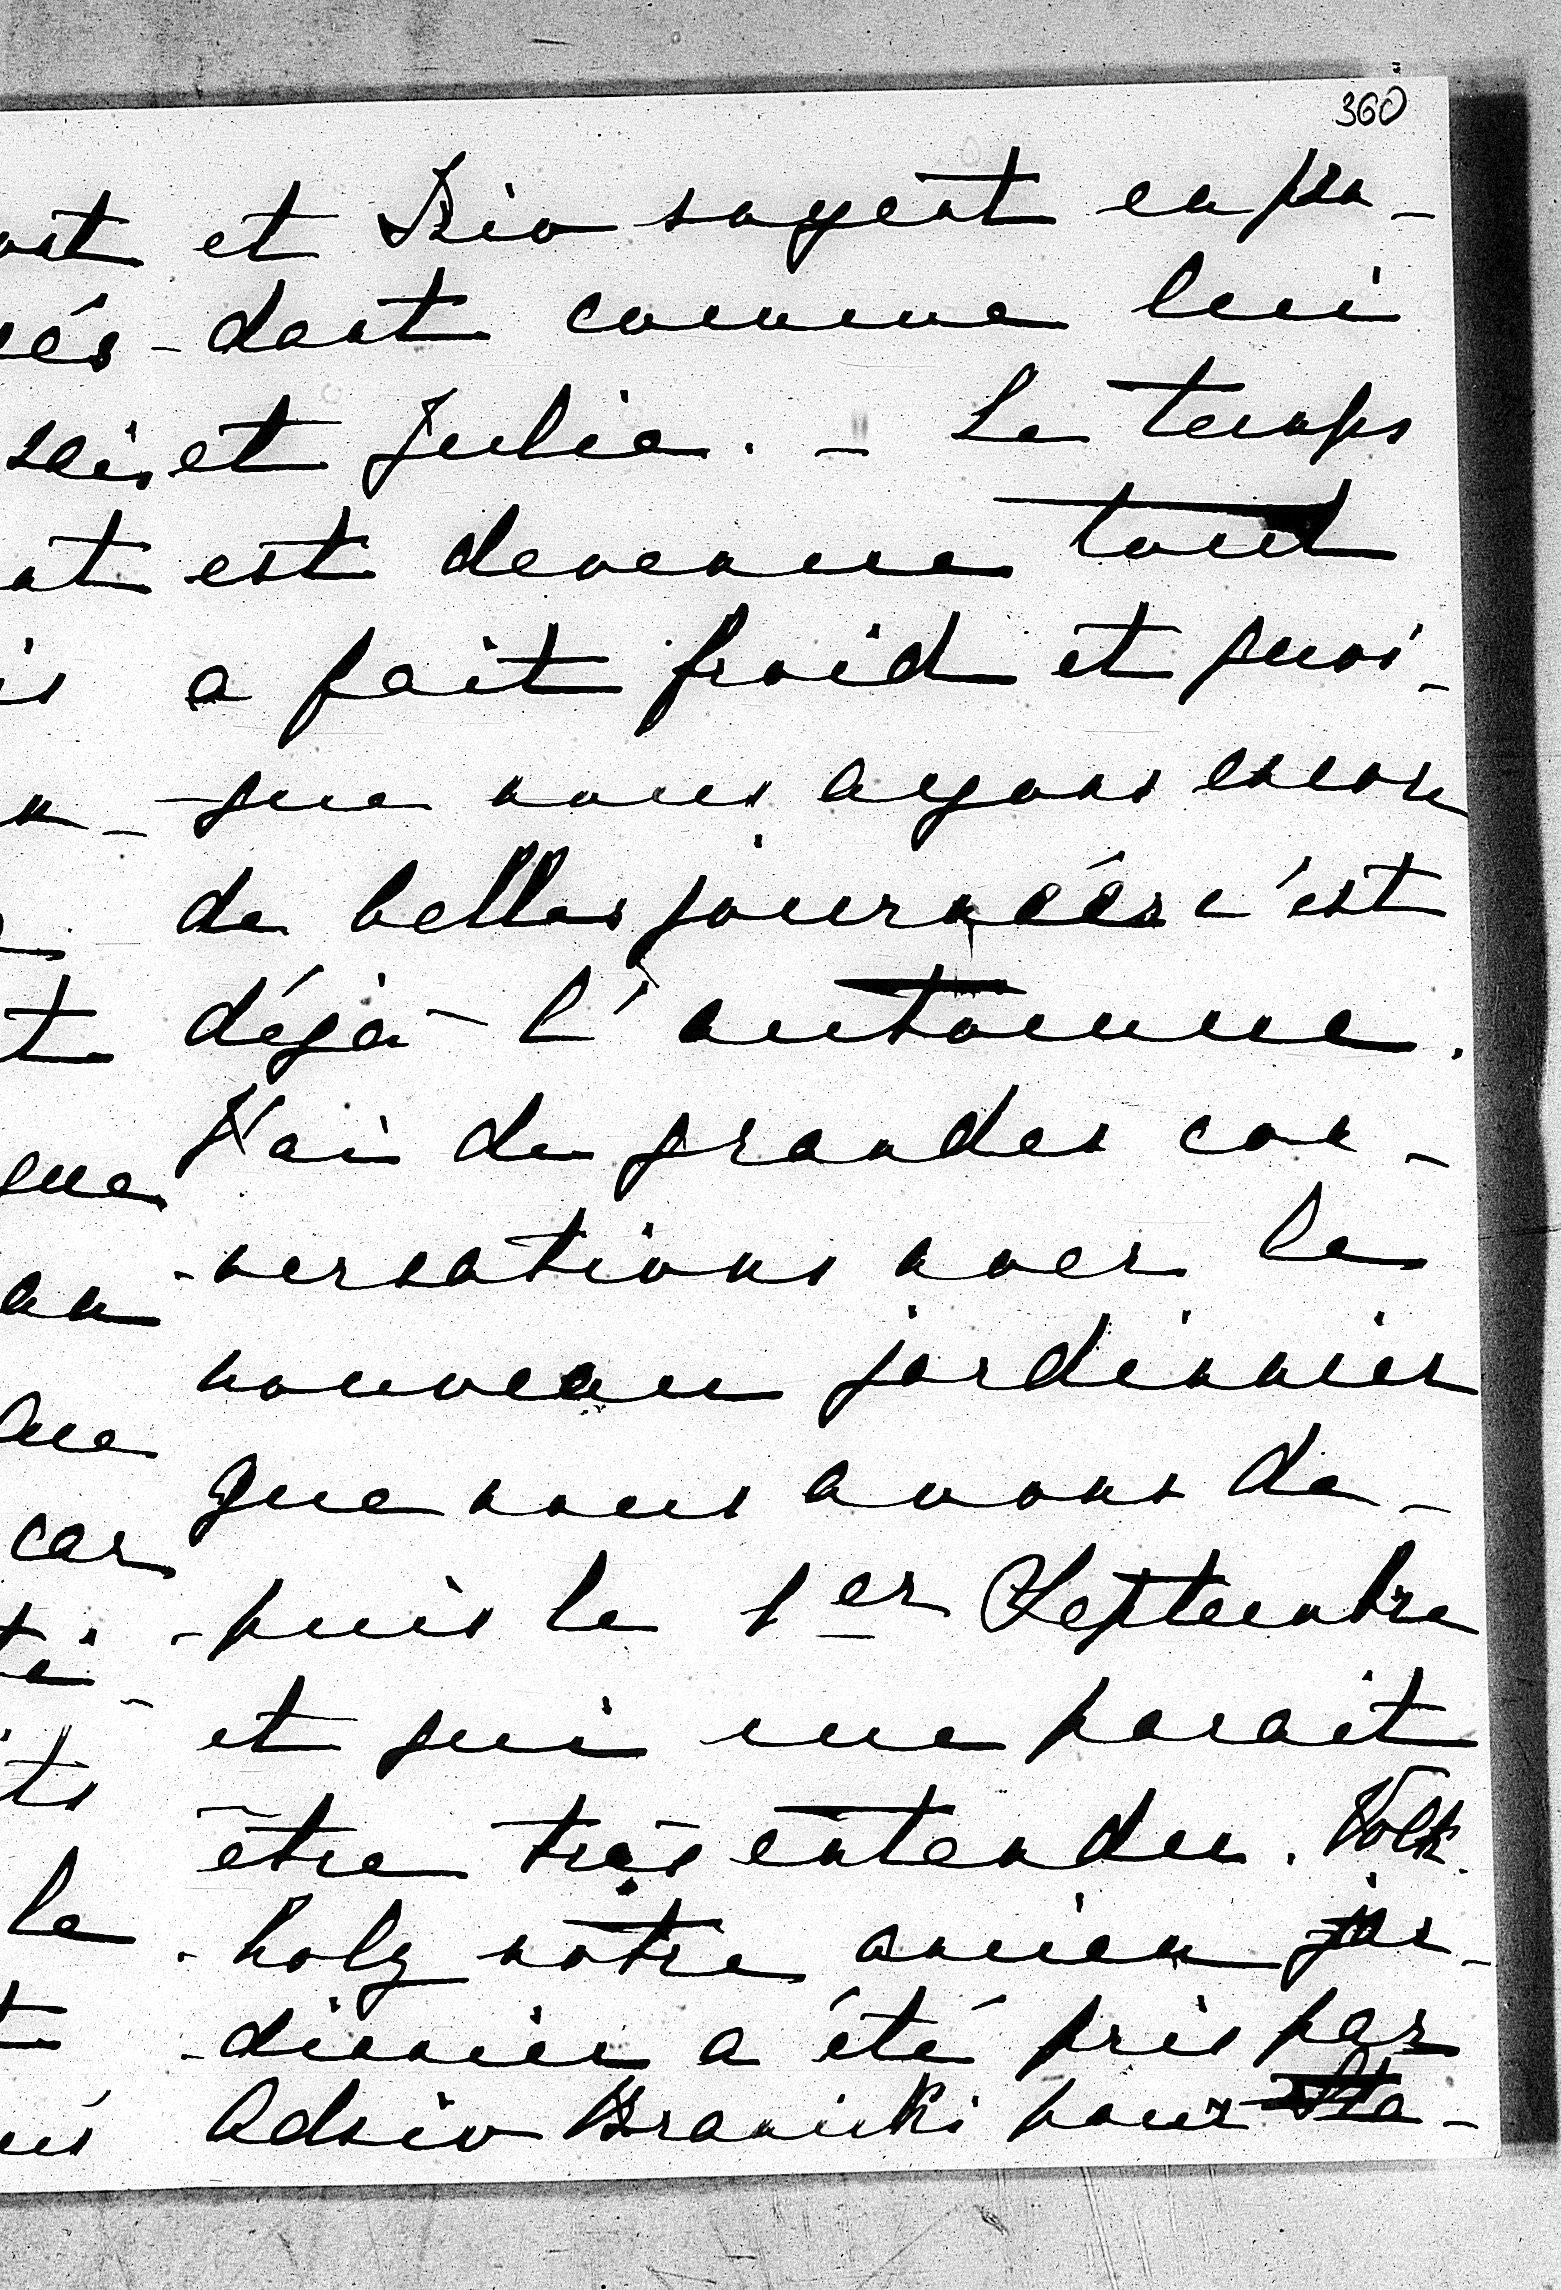 360
et Izio soyent en pen-
-dant comme lui
et Julie. - Le temps
est devenue tout
a fait froid et quoi-
-que nous ayons encore
de belles journées c'est
déjà l'automne.
J'ai de grandes con-
-versations avec le
nouveau jardinnier
que nous avons de-
-puis le 1er Septembre
et qui me parait
être très entendu. Volk
-holz notre ancien jar-
-dinnier a été pris par
Adzio Branicki pour Sta-
que
car
le